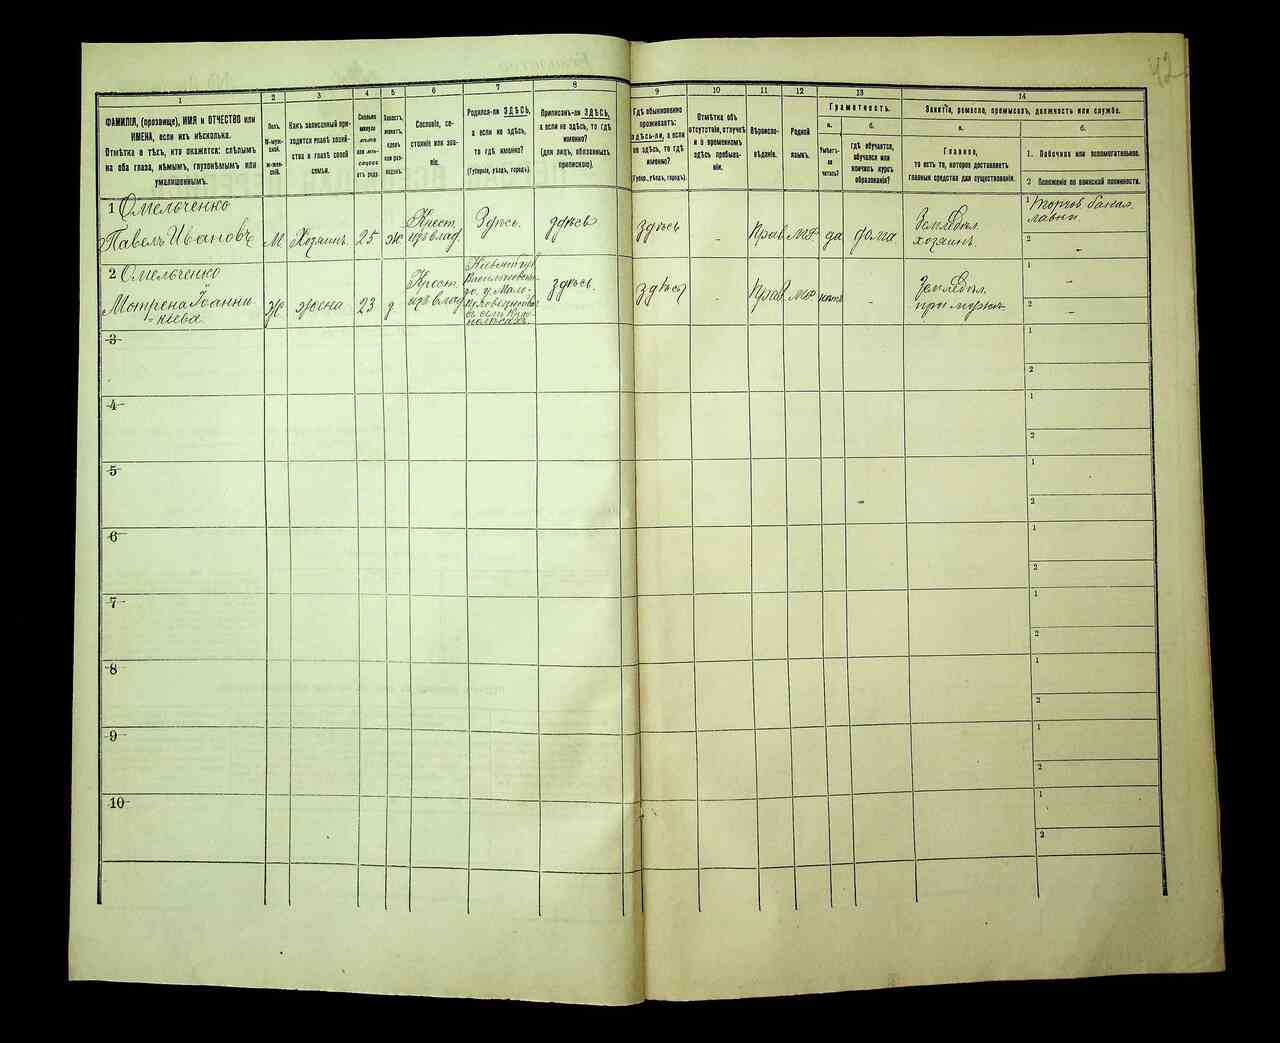 42
1
2
3
4
5
6
7
8
9
10
11
12
13
14
ФАМИЛІЯ, (прозвище), ИМЯ и ОТЧЕСТВО или
ИМЕНА, если ихъ нѣсколько.
Отмѣтка о тѣхъ, кто окажется: слѣпымъ
на оба глаза, нѣмымъ, глухонѣмымъ или
умалишеннымъ.
Полъ.
М-муж-
ской.
Ж-жен-
скій.
Какъ записанный при-
ходится главѣ хозяй-
ства и главѣ своей
семьи.
Сколько
минуло
лѣтъ
или мѣ-
сяцевъ
отъ роду
Холостъ,
женатъ,
вдовъ
или раз-
веденъ.
Сословіе, со-
стояніе или зва-
ніе.
Родился-ли ЗДѢСЬ,
а если не здѣсь,
то гдѣ именно?
(Губернія, уѣздъ, городъ).
Приписанъ-ли ЗДѢСЬ,
а если не здѣсь, то гдѣ
именно?
(для лицъ, обязанныхъ
припискою).
Гдѣ обыкновенно
проживаетъ:
здѣсь-ли, а если
не здѣсь, то гдѣ
именно?
(Губер., уѣздъ, городъ).
Отмѣтка объ
отсутствіи, отлучкѣ
и о временномъ
здѣсь пребыва-
ніи.
Вѣроиспо-
вѣданіе.
Родной
языкъ.
Грамотность.
а.
Умѣетъ-
ли
читать?
б.
гдѣ обучается,
обучался или
кончилъ курсъ
образованія?
Занятіе, ремесло, промыселъ, должность или служба.
а.
Главное,
то есть то, которое доставляетъ
главныя средства для существованія.
б.
1. Побочное или вспомогательное.
2 Положеніе по воинской повинности.
1 Омельченко
Павелъ Ивановъ
М
Хозяинъ
25
ж
Крест.
изъ влад.
Здѣсь.
здѣсь
здѣсь
-
Прав
мр
да
дома
Земледѣл.
хозяинъ.
1
2
-
2 Омельченко
Мотрена Іоанни-
кіева
Ж
жена
23
з
Крест.
изъ влад
здѣсь.
здѣсь
-
Прав
мр
нѣтъ
-
Земледѣл.
при мужѣ
1
-
2
-
3
1
2
4
1
2
5
1
2
6
1
2
7
1
2
8
1
2
9
1
2
10
1
2